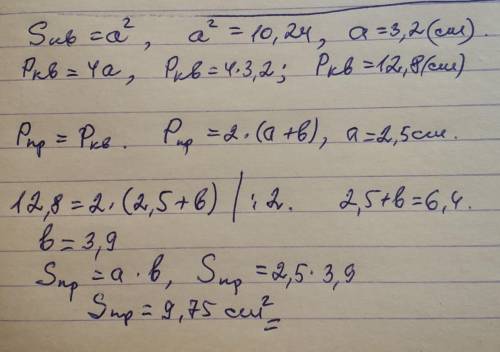 Sкв = a², a² = 10,24, a = 3,2 (см).
Pкв = 4a, Pкв = 4·3,2; Pкв = 12,8 (см)
Pпр = Pкв. Pпр = 2·(a+b), a = 2,5 см.
12,8 = 2·(2,5+b) | :2. 2,5+b = 6,4.
b = 3,9
Sпр = a·b, Sпр = 2,5·3,9
Sпр = 9,75 см²